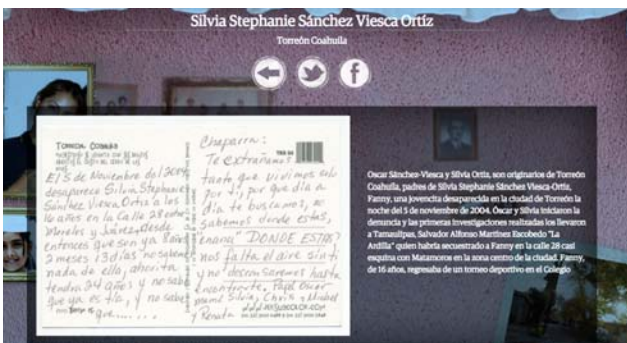 Silvia Stephanie Sánchez Viesca Ortíz
Torreón Coahuila
TORREÓN, COAHUILA
El 5 de Noviembre del 2004
desaparece Silvia Stephanie
Sánchez Viesca Ortiz a los
16 años en la Calle 28 entre
Morelos y Juárez, desde
entonces que son ya 8 años
2 meses 13 días no sabemos
nada de ella, ahorita
tendra 24 años y no sabe
que ya es tía, y no sabe
que......
Chaparra:
Te extrañamos
tanto que vivimos solo
por ti, por que día a
día te buscamos, no
sabemos donde estas,
enana" DONDE ESTAS?
nos falta el aire sin ti
y no descansaremos hasta
encontrarte. Papá Oscar
mamí Silvia, Chris y Michel
y Renata
Oscar Sánchez-Viesca y Silvia Ortíz, son originarios de Torreón
Coahuila, padres de Silvia Stephanie Sánchez Viesca-Ortíz,
Fanny, una jovencita desaparecida en la ciudad de Torreón la
noche del 5 de noviembre de 2004. Óscar y Silvia iniciaron la
denuncia y las primeras investigaciones realizadas los llevaron
a Tamaulipas, Salvador Alfonso Martínez Escobedo "La
Ardilla" quien habría secuestrado a Fanny en la calle 28 casi
esquina con Matamoros en la zona centro de la ciudad. Fanny,
de 16 años, regresaba de un torneo deportivo en el Colegio